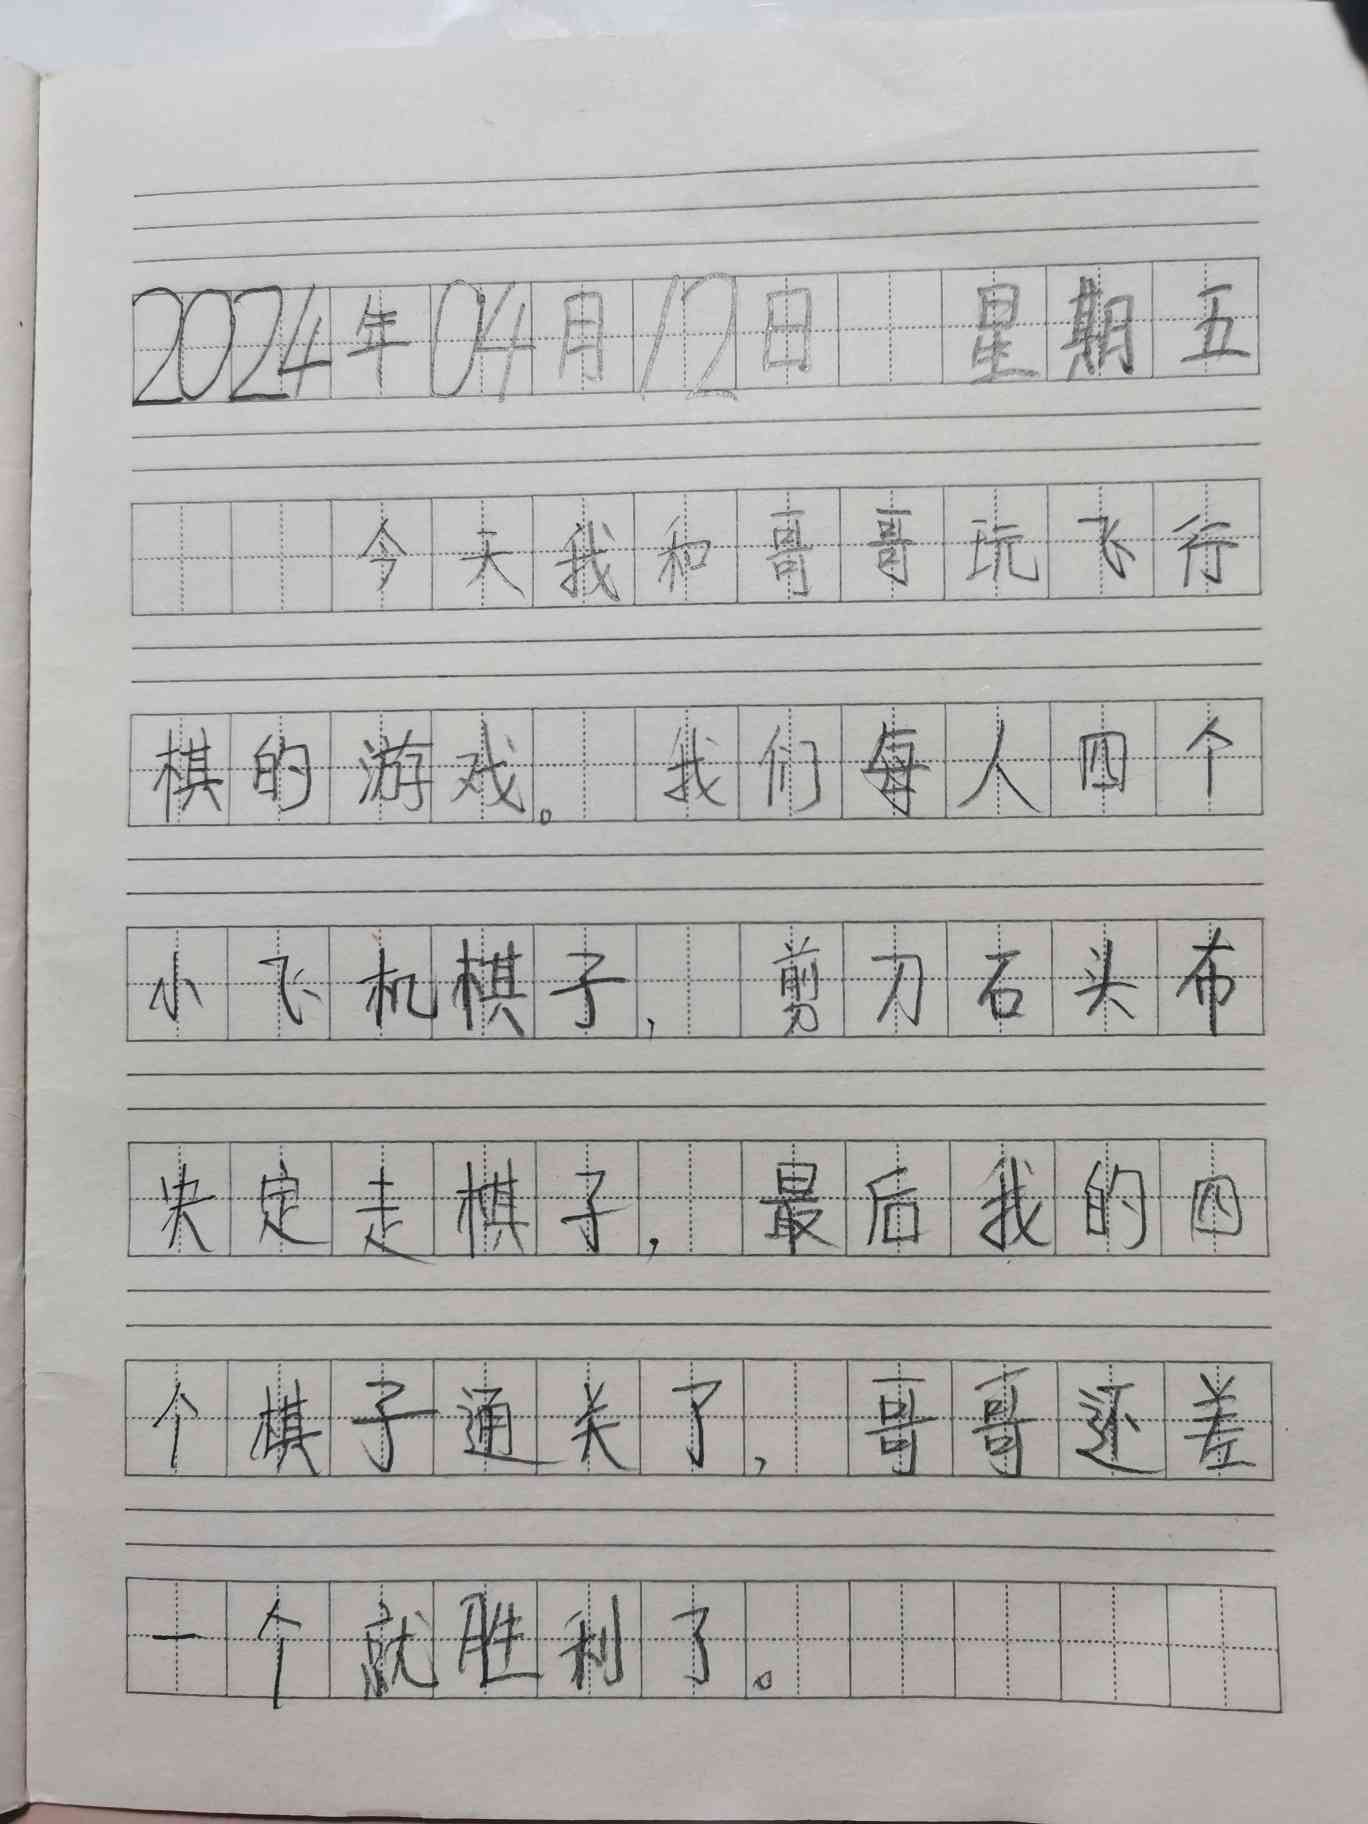 2024年04月12日 星期五
今天我和哥哥玩飞行
棋的游戏。我们每人四个
小飞机棋子,剪刀石头布
决定走棋子,最后我的四
个棋子通关了,哥哥还差
一个就胜利了。